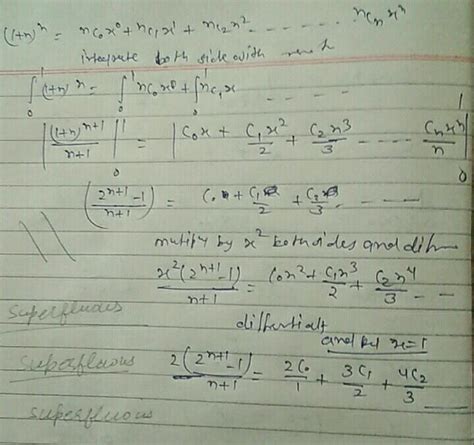 (1+x)^n = nC0x^0 + nC1x^1 + nC2x^2 ........ nCnx^n
integrate both side with
∫_0^1 (1+x)^n = ∫_0^1 nC0x^0 + ∫_0^1 nC1x - - - -
|(1+x)^{n+1}/(n+1)|_0^1 = |C0x + C1x^2/2 + C2x^3/3 - - - - Cnx^n/n|_0^1
((2^{n+1}-1)/(n+1)) = C0 + C1/2 + C2/3 - - - -
multify by x^2 both sides and
x^2(2^{n+1}-1)/(n+1) = C0x^2 + C1x^3/2 + C2x^4/3 - - -
superfluous
and put x=1
superfluous
2(2^{n+1}-1)/(n+1) = 2C0/1 + 3C1/2 + 4C2/3 - - -
superfluous